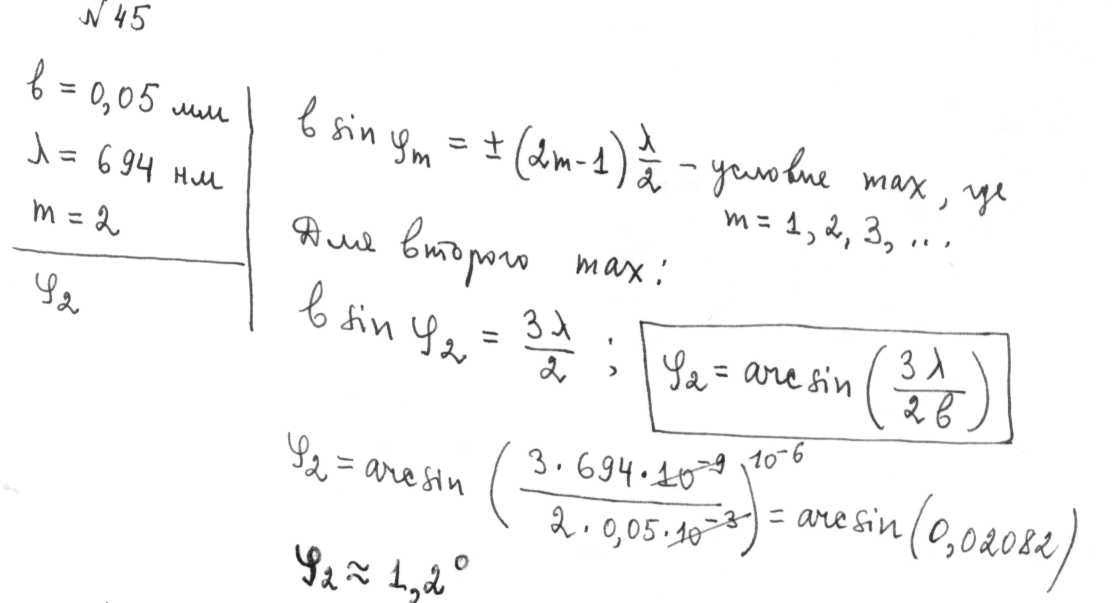 № 45
b = 0,05 мм
λ = 694 нм
m = 2
φ₂
b sin φₘ = ± (2m-1) λ/2 – условие max, где
m = 1, 2, 3, ...
Для второго max:
b sin φ₂ = 3λ/2 ; φ₂ = arcsin (3λ/2b)
φ₂ = arcsin (3 · 694 · 10⁻⁹ / 2 · 0,05 · 10⁻³) 10⁻⁶ = arcsin (0,02082)
φ₂ ≈ 1,2°